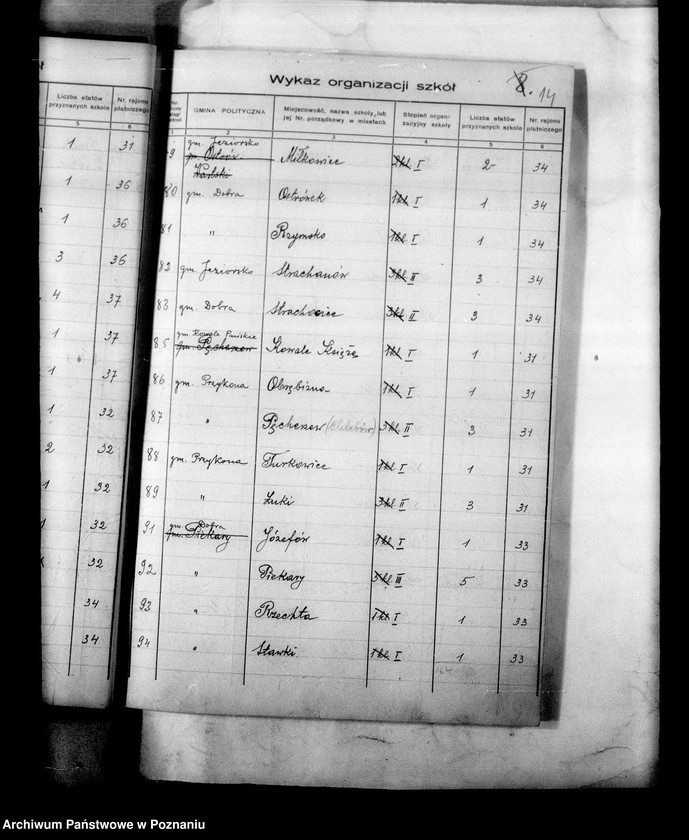 Liczba etatów przyznanych szkole
Nr. rejonu płatniczego
5 6
1 31
1 36
1 36
3 36
4 37
1 37
1 37
1 32
2 32
1 32
1 32
32
34
34
Wykaz organizacji szkół
8. 14
GMINA POLITYCZNA
Miejscowość, nazwa szkoły, lub jej Nr. porządkowy w miastach
Stopień organizacyjny szkoły
Liczba etatów przyznanych szkole
Nr. rejonu płatniczego
1 2 3 4 5 6
gm. Jeziorsko
9 gm. Ostrów Miłkowice 1kl I 2 34
Warski
80 gm. Dobra Ostrówek 1kl I 1 34
81 " Rzymsko 1kl I 1 34
82 gm. Jeziorsko Strachanów 3kl II 3 34
83 gm. Dobra Strachocice 3kl II 3 34
gm. Kowale Pańskie
85 gm. Pęcherzew Kowale Księże 1kl I 1 31
86 gm. Przykona Obrębizna 1kl I 1 31
87 " Pęcherzew 3kl II 3 31
88 gm. Przykona Turkowice 1kl I 1 31
89 " Łuki 3kl II 3 31
gm. Dobra
91 gm. Piekary Józefów 1kl I 1 33
92 " Piekary 3kl III 5 33
93 " Rzechta 1kl I 1 33
94 " Stawki 1kl I 1 33
8
Archiwum Państwowe w Poznaniu